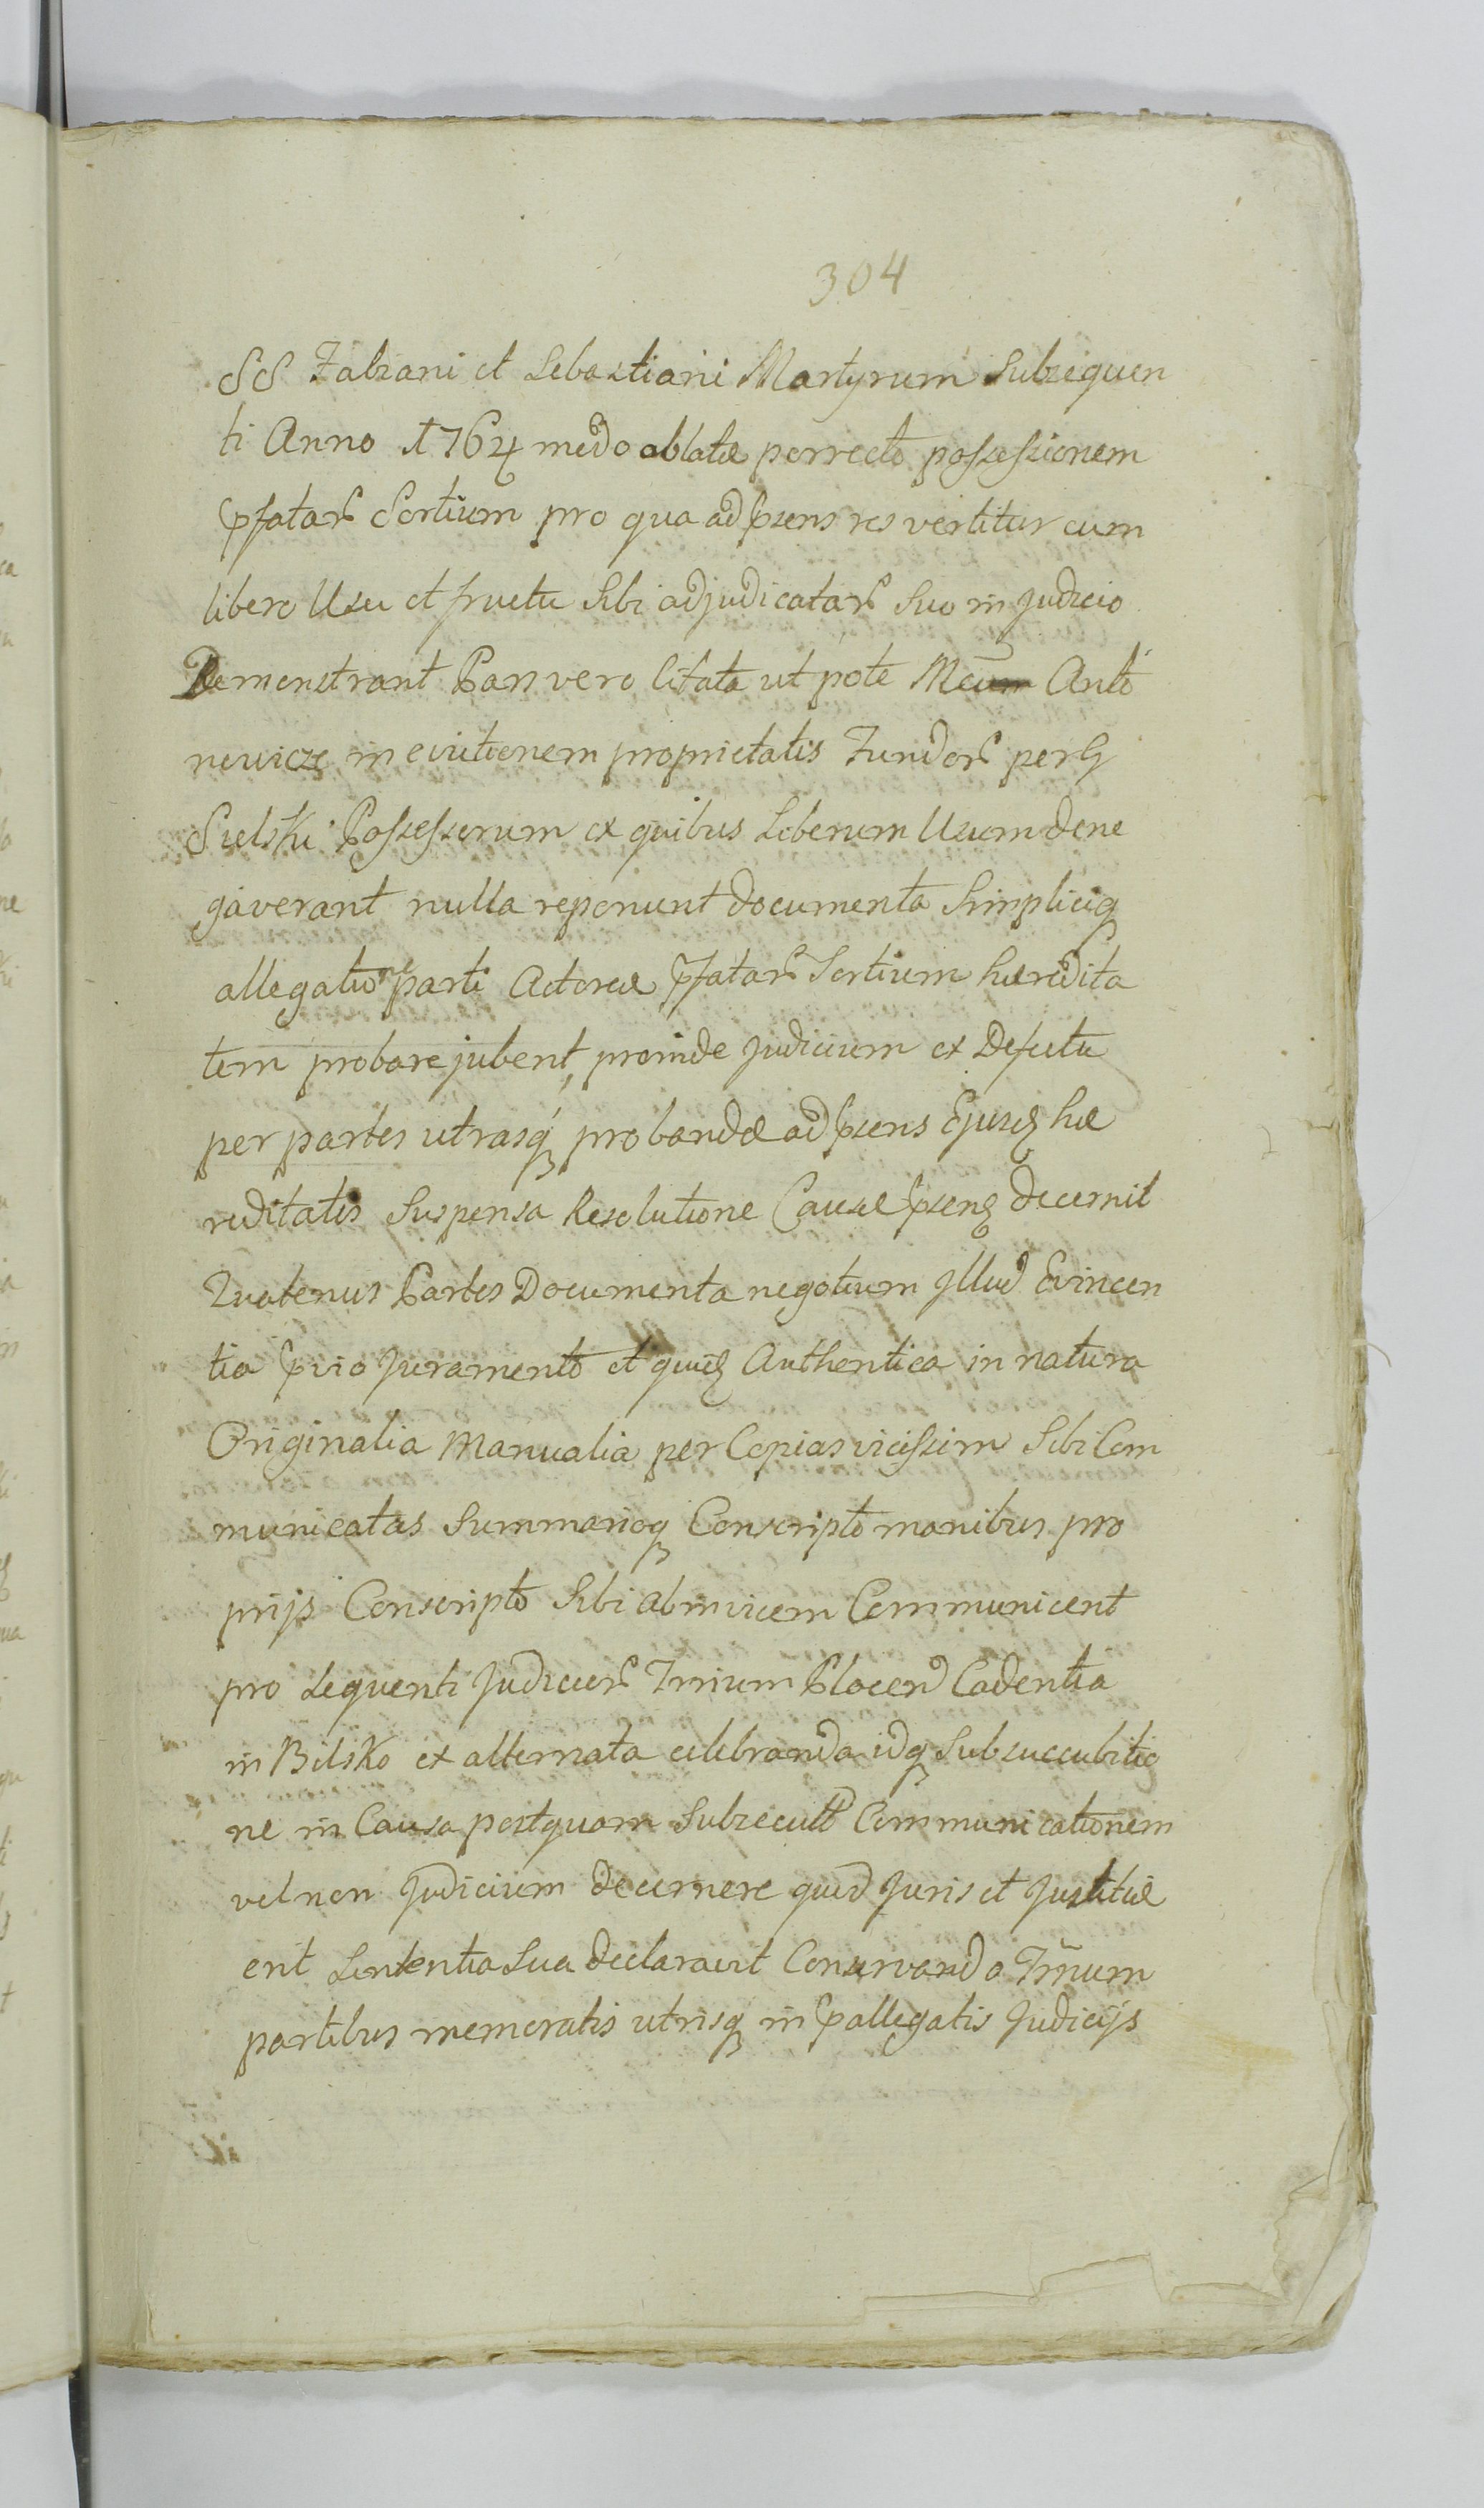 304
SS Fabiani et Sebastiani Martyrum Subsequen
ti Anno 1764 medo ablatæ porrecto possessionem
pfatar Sortium pro qua ad psens res vertitur cum
libero Usu et fructu Sibi adjudicatar suo in judicio
Demonstrant Pars vero Citata ut pote Anto
nowicze in evictionem proprietatis Fundor per G
Sielski Possessorum ex quibus Liberum Usum dene
gaverant nulla reponunt documenta Simpliciq
allegatio parti Actoreæ pfatar Sortium hæredita
tem probare jubent, proinde judicium ex Defectu
per partes utrasq probandæ ad psens Ejusd hæ
reditatis Suspensa Resolutione Causæ psens decernit
Quatenus Partes Documenta negotium Jllud Evincen
tia pvio Juramento et quid Authentica in natura
Originalia Manualia per Copias vicissim Sibi Com
municatas Summarioq Conscripto manibus pro
prijs Conscripto Sibi ab invicem Communicent
pro Sequenti Judicior Trnium Placen Cadentia
in Bilsko ex alternata celebranda idq Sub succubitio
ne in Causa postquam Subsecut Communicationem
vel non Judicium decernere quid Juris et Justitiæ
erit Sententia Sua declaravit Conservando Trnum
partibus memoratis utrisq in pallegatis Judicijs